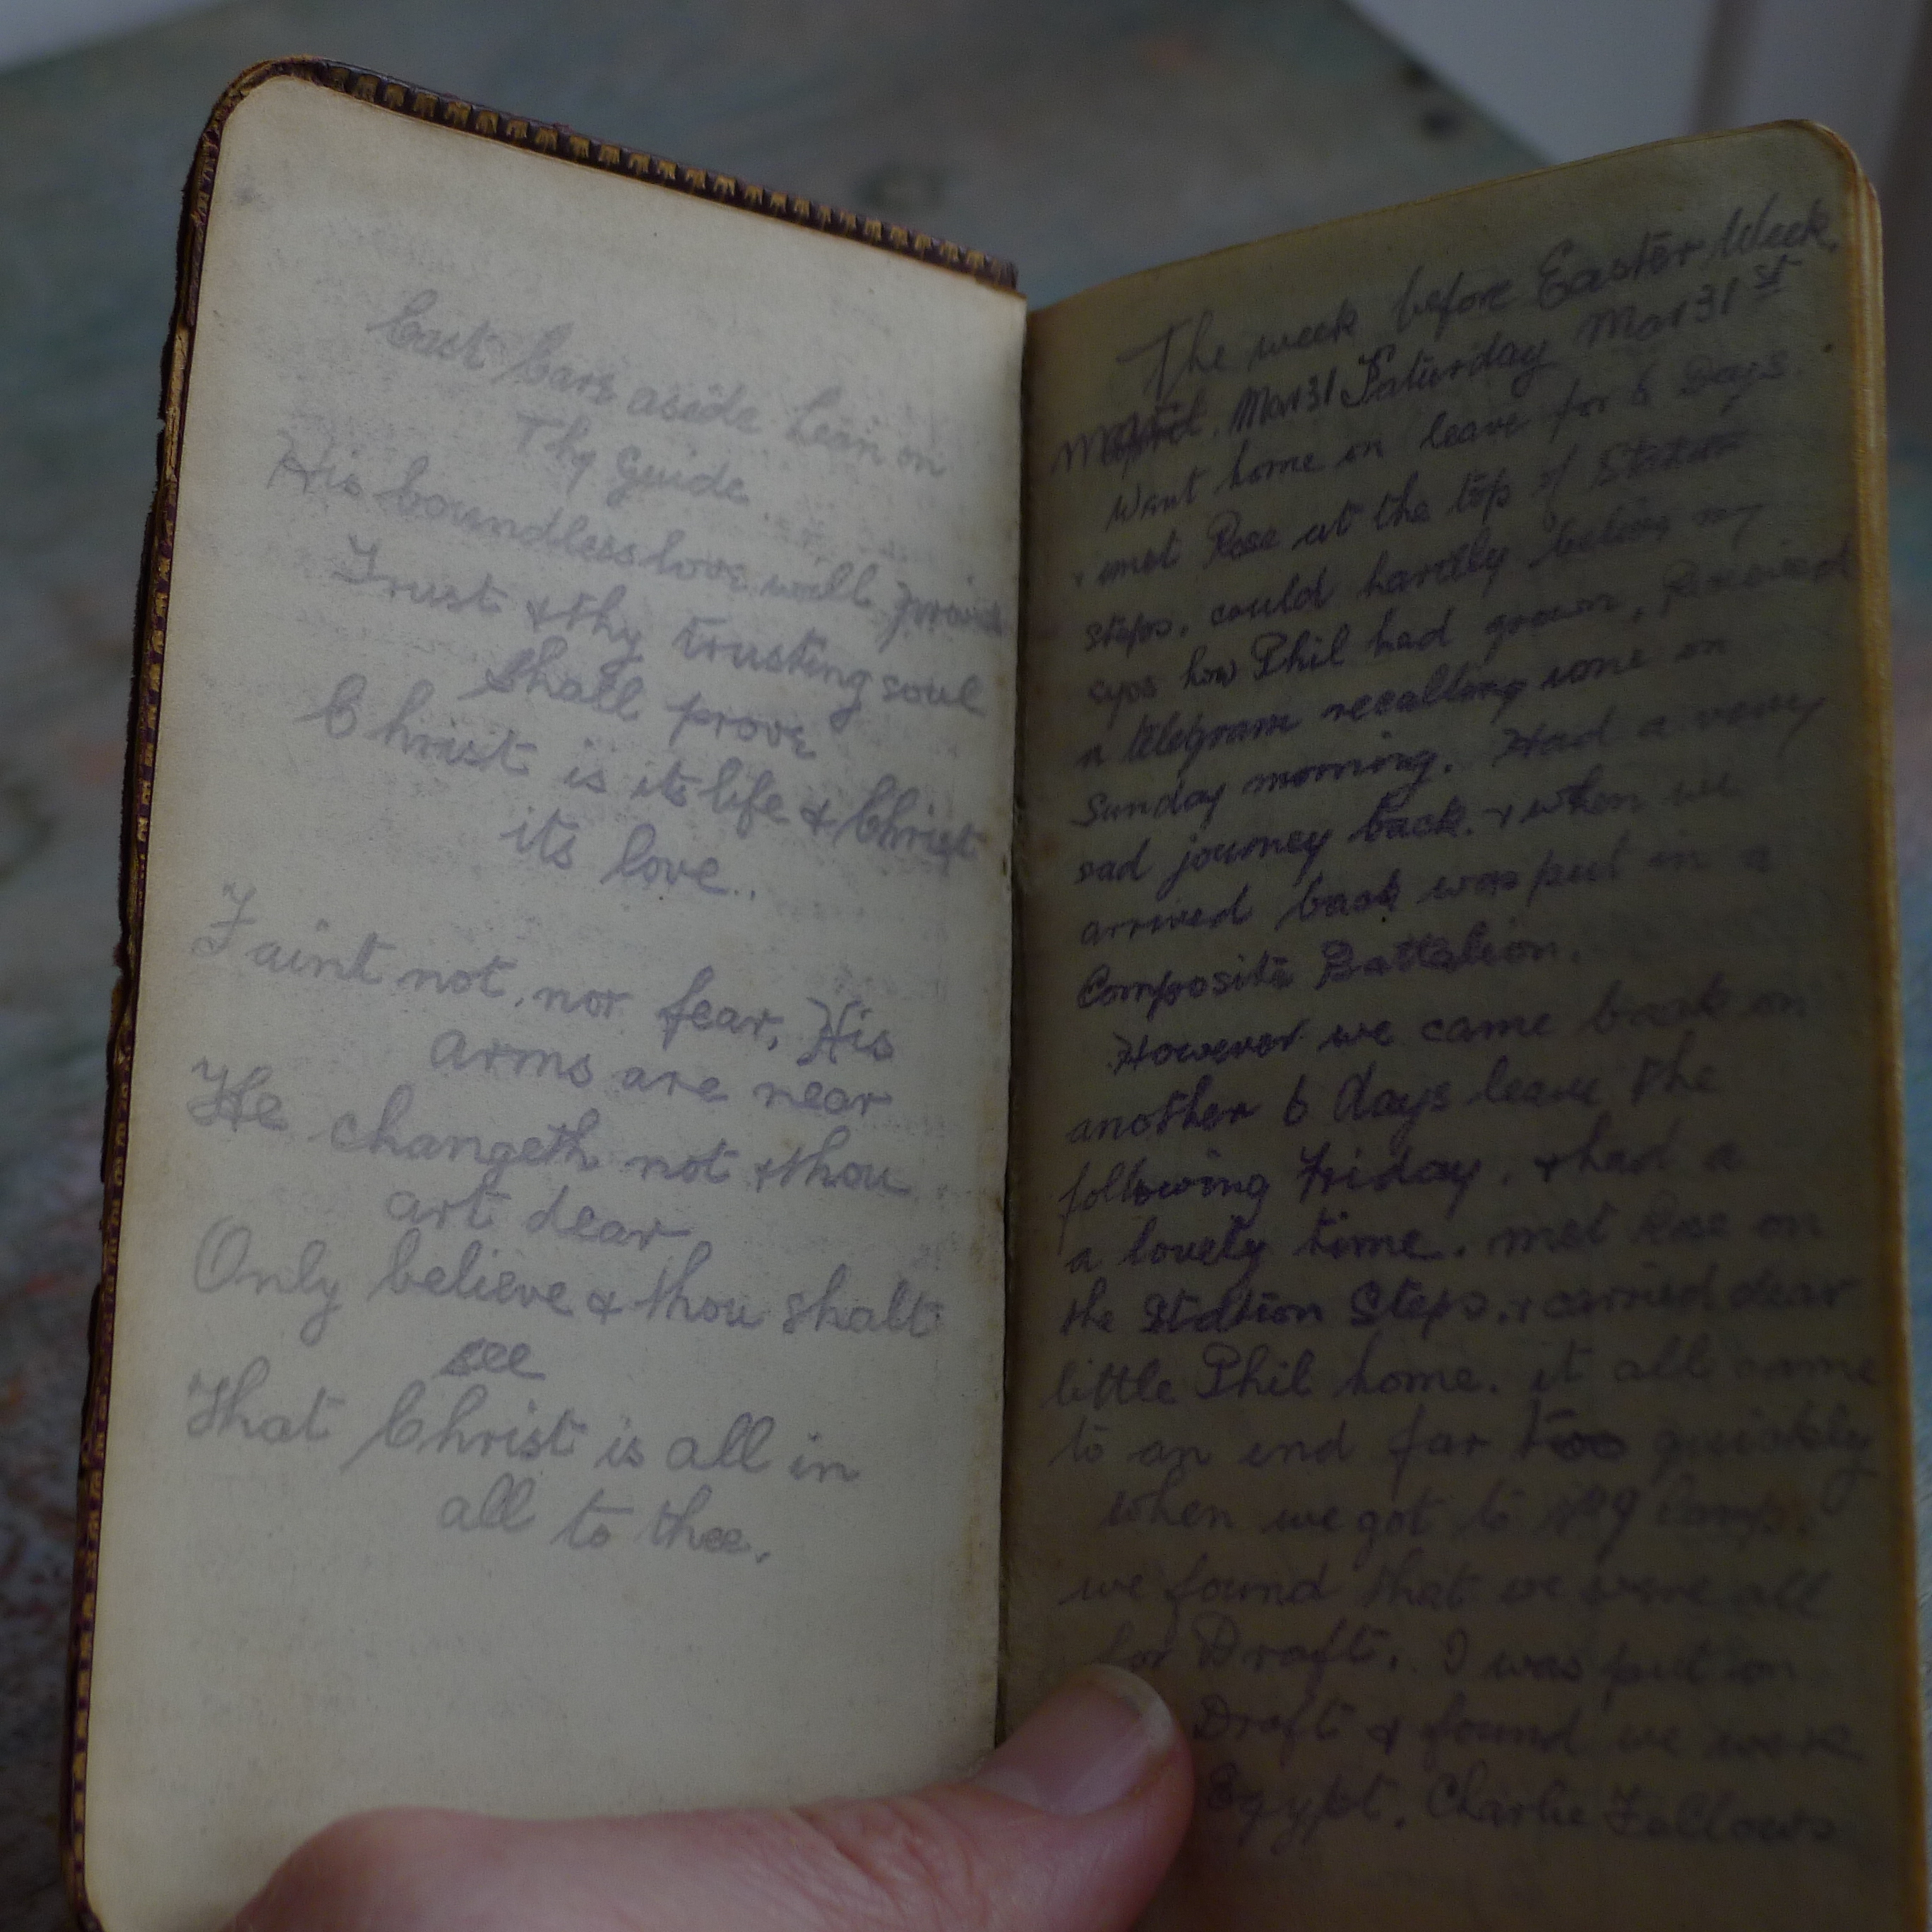 Cast Care aside Lean on
Thy Guide
His boundless love will provide
Trust & thy trusting soul
shall prove
Christ is its life & Christ
its love..
Faint not, nor fear, His
arms are near
He changeth not & thou
art dear
Only believe & thou shalt
see
That Christ is all in
all to thee.
The week before Easter Week.
April. Mar 31 Saturday Mar 31st
Went home on leave for 6 Days.
met Rose at the top of Station
steps. could hardly believe my
eyes how Phil had grown. Received
a telegram recalling me on
Sunday morning. Had a very
sad journey back. & when we
arrived back was put in a
Composite Battalion.
However we came back on
another 6 days leave the
following Friday. & had a
a lovely time. met Rose on
the Station Steps. & carried dear
little Phil home. it all came
to an end far too quickly
when we got to Camp.
we found that we were all
for Draft. I was put on
Draft & found we were
Egypt. Charlie Fallows